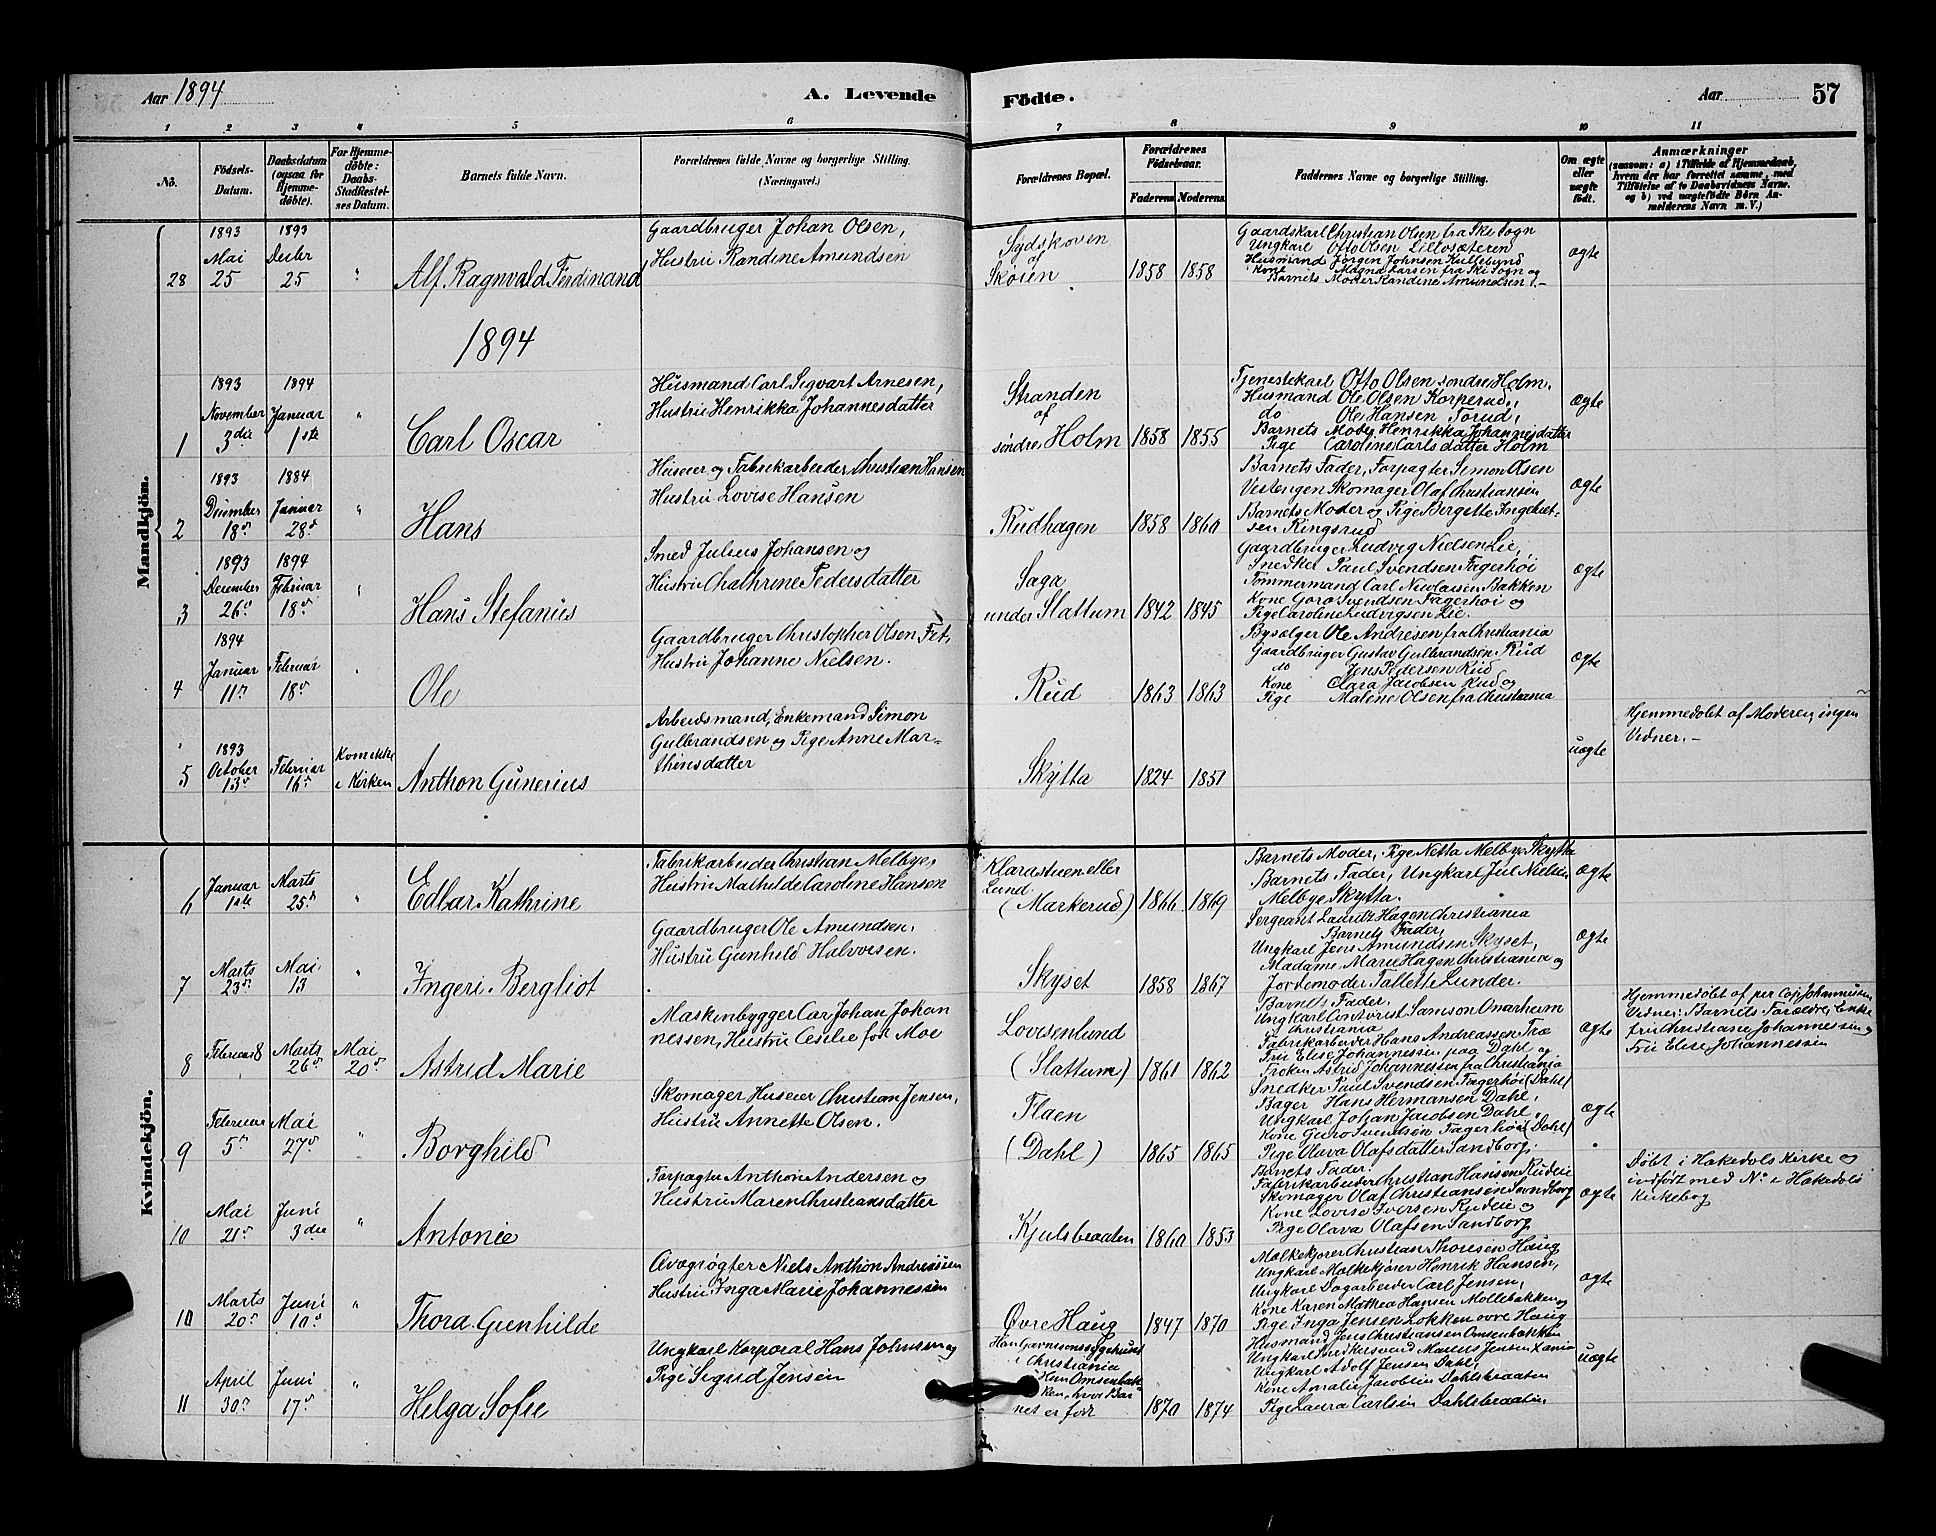 Aar 1894
A. Levende
Födte.
Aar
57
1 2 3 4 5 6 7 8 9 10 11
No.
Födsels-Datum.
Daabsdatum (ogsaa for Hjemme-döbte).
For Hjemme-döbte: Daabs-Stadfæstel-ses Datum.
Barnets fulde Navn.
Forældrenes fulde Navne og borgerlige Stilling. (Næringsvei.)
Forældrenes Bopæl.
Forældrenes Födselsaar.
Faderens Moderens
Faddernes Navne og borgerlige Stilling.
Om ægte eller uægte födt.
Anmærkninger
(saasom: a) i Tilfælde af Hjemmedaab,
hvem der har forrettet samme, med
Tilföielse af to Daabsvidners Navne.
og b) ved uægtefödte Börn An-
melderens Navn m. V.)
Mandkjön.
28
1893 Mai 25
1893 Decbr 25
"
Alf Ragnvald Ferdinand
Gaardbruger Johan Olsen,
Hustru Randine Amundsen
Sydskoven
af
Skøien
1858 1858
Gaardskarl Christian Olsen fra Ski Sogn
Ungkarl Otto Olsen Lillosæteren
Husmand Jørgen Johnsen Kullebund
Kone Larsen fra Ski Sogn og
Barnets Moder Randine Amundsen
ægte
1894
1
1893 November 3die
1894 Januar 1ste
"
Carl Oscar
Husmand Carl Sigvart Arnesen,
Hustru Henrikka Johannesdatter
Stranden
af
søndre Holm
1858 1855
Tjenestekarl Otto Olsen søndre Holm.
Husmand Ole Olsen Korperud,
do Ole Hansen Torud,
Barnets Moder Henrikka Johannesdatter
Pige Caroline Carlsdatter Holm
ægte
2
1893 December 18d
1884 Januar 28d
"
Hans
Huseier og Fabrikarbeider Christian Hansen
Hustru Lovise Hansen
Rudhagen
1858 1860
Barnets Fader, Forpagter Simon Olsen
Vestengen Skomager Olaf Christiansen
Barnets Moder og Pige Bergette Ingebret-
sen Ringsrud
ægte
3
1893 December 26d
1894 Februar 18d
"
Hans Stefanus
Smed Julius Johansen og
Hustru Chathrine Pedersdatter
Saga
under Slattum
1842 1845
Gaardbruger Ludvig Nielsen Lie,
Snedker Paul Svendsen Fagerhøi
Tømmermand Carl Nicolaisen Bakken
Kone Goro Svendsen Fagerhøi og
Pige Caroline Ludvigsen Lie.
ægte
4
1894 Januar 11d
Februar 18d
Ole
Gaardbruger Christopher Olsen Fet,
Hustru Johanne Nielsen.
Rud
1863 1863
Bysælger Ole Andresen fra Christiania
Gaardbruger Gustav Gulbrandsen Rud
do Jens Pedersen Rud
Kone Clara Jacobsen Rud og
Pige Malene Olsen fra Christiania
ægte
5
1893 October 13d
Februar 16d
Kom ikke i Kirken
Anthon Gunerius
Arbeidsmand, Enkemand Simon
Gulbrandsen og Pige Anne Mar-
thinsdatter
Skytta
1824 1851
uægte
Hjemmedøbt af Moderen, ingen
Vidner.-
Kvindekjön.
6
Januar 1ste
Marts 25d
"
Edbar Kathrine
Fabrikarbeider Christian Melbye,
Hustru Mathilde Caroline Hansen
Klarastuen eller
Lund
(Markerud)
1866 1869
Barnets Moder, Pige Netta Melbye Skytta
Barnets Fader, Ungkarl Jul Nielsen
Melbye Skytta.
ægte
7
Marts 23d
Mai 13
"
Ingeri Bergliot
Gaardbruger Ole Amundsen,
Hustru Gunhild Halvorsen.
Skyset
1858 1867
Sergeant Lauritz Hagen Christiania
Barnets Fader,
Ungkarl Jens Amundsen Skyset,
Madame Marie Hagen Christiania og
Jordemoder Tallette Lunder.
ægte
8
Februar 8
Marts 26d
Mai 20d
Astrid Marie
Maskinbygger Carl Johan Johan
nessen, Hustru Cecilie fød Moe
Lovisenlund
(Slattum)
1861 1862
Barnets Fader.
Ungkarl Contorist Samson Omarheim
Christiania
Fabrikarbeider Hans Andreassen Træ
Frue Elise Johannessen paa Dahl og
Frøken Astrid Johannessen fra Christiania
ægte
Hjemmedøbt af per Cap. Johannessen
Vidner: Barnets Forældre, Enke
fru Christiane Johannessen og
Frue Elise Johannessen
9
Februar 5d
Mai 27d
"
Borghild
Skomager Huseier Christian Jensen,
Hustru Annette Olsen.
Flaen
(Dahl)
1865 1865
Snedker Paul Svendsen Fagerhøi (Dahl)
Bager Hans Hermansen Dahl,
Ungkarl Johan Jacobsen Dahl,
Kone Guro Svendsen Fagerhøi (Dahl)
Pige Olava Olafsdatter Sandborg.
ægte
10
Mai 21d
Juni 3die
"
Antonie
Forpagter Anthon Andersen og
Hustru Maren Christiansdatter
Kjulsbraaten
1860 1853
Barnets Fader.
Fabrikarbeider Christian Hansen Rudeie
Skomager Olaf Christiansen Sandborg
Kone Lovise Iversen Rudeie og
Pige Olava Olafsen Sandborg
ægte
Døbt i Hakedals Kirke og
indført med No i Hakedals
Kirkebog
10
Marts 20d
Juni 10d
"
Thora Gunhilde
Qvægrøgter Niels Anthon Andreassen
Hustru Inga Marie Johannessen
Øvre Haug
1847 1870
Mælkekjører Christian Thoresen Haug
Ungkarl Mælkekjører Henrik Hansen,
Ungkarl Dagarbeider Carl Jensen,
Kone Karen Mathea Hansen Møllebakken og
Pige Inga Jensen Løkken øvre Haug
ægte
11
April 30d
Juni 17d
"
Helga Sofie
Ungkarl Korporal Hans Johnsen og
Pige Sigrid Jensen
Han Garnisonssygehuset
i Christiania
Hun Omsenbak-
ken, hvor Bar-
net er født
1870 1874
Husmand Jens Christiansen Omsenbakken
Ungkarl Snedkersvend Marius Jensen Xania
Ungkarl Adolf Jensen Dahl,
Kone Amalie Jacobsen Dahlsbraaten
Pige Laura Carlsen Dahlsbraaten
uægte